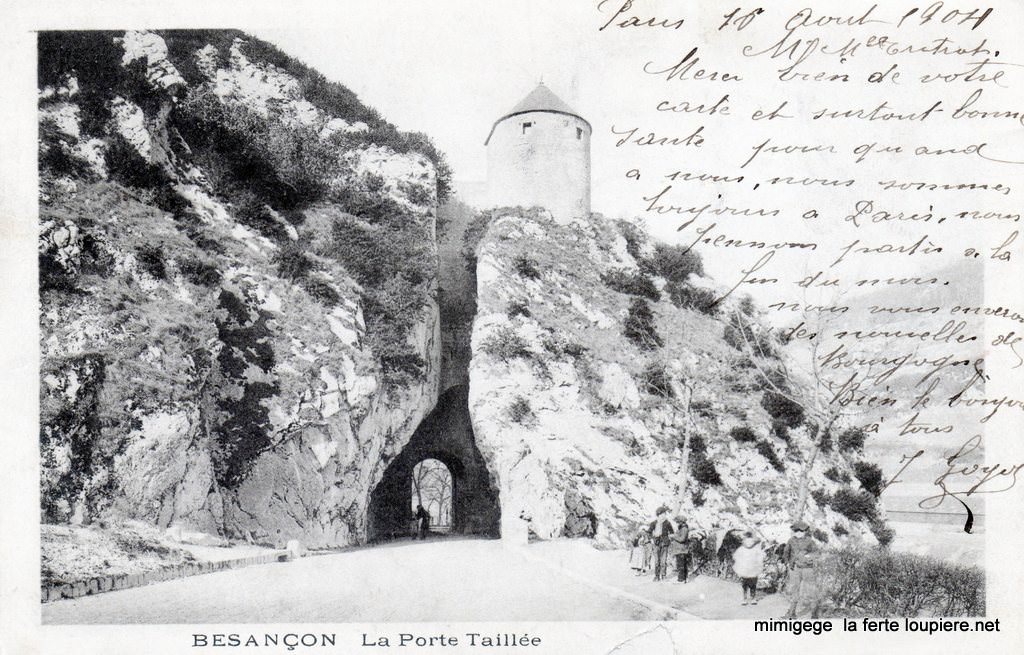 Paris 18 Août 1904
Mr Mee
Merci bien de votre
carte et surtout bonne
sante pour quand
a nous, nous sommes
toujours a Paris, nous
pensons partir a la
fin du mois.
nous vous enverons
des nouvelles de
Bourgogne
Bien le bonjour
à tous
BESANÇON La Porte Taillée
mimigege la ferte loupiere.net